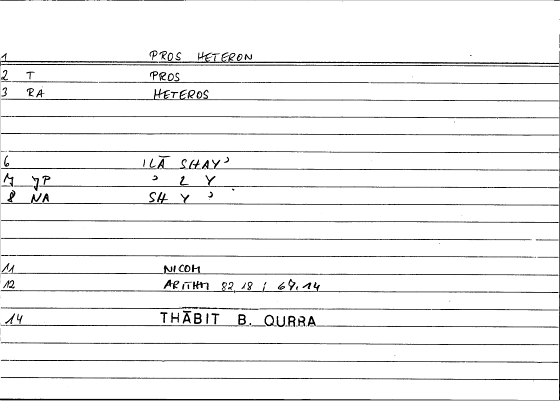 1 PROS HETERON
2 T PROS
3 RA HETEROS
6 ILĀ SHAY'
7 JP ' L Y
8 NA SH Y '
11 NICOM
12 ARITHM 82,18 ; 67,14
14 THĀBIT B. QURRA